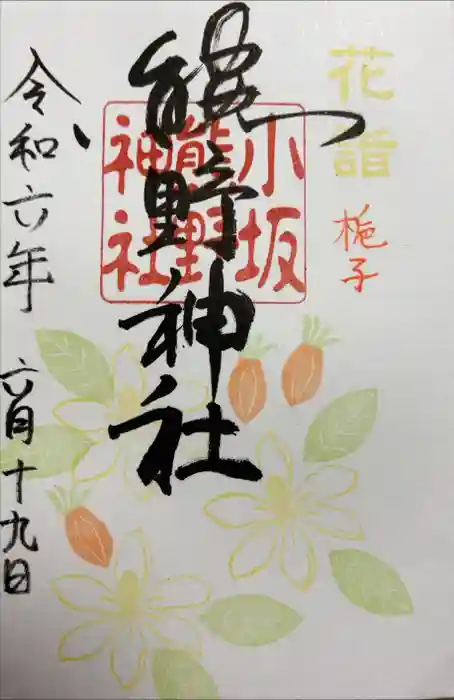 花詣
梔子
熊野神社
小坂
熊野
神社
令和六年 六月十九日